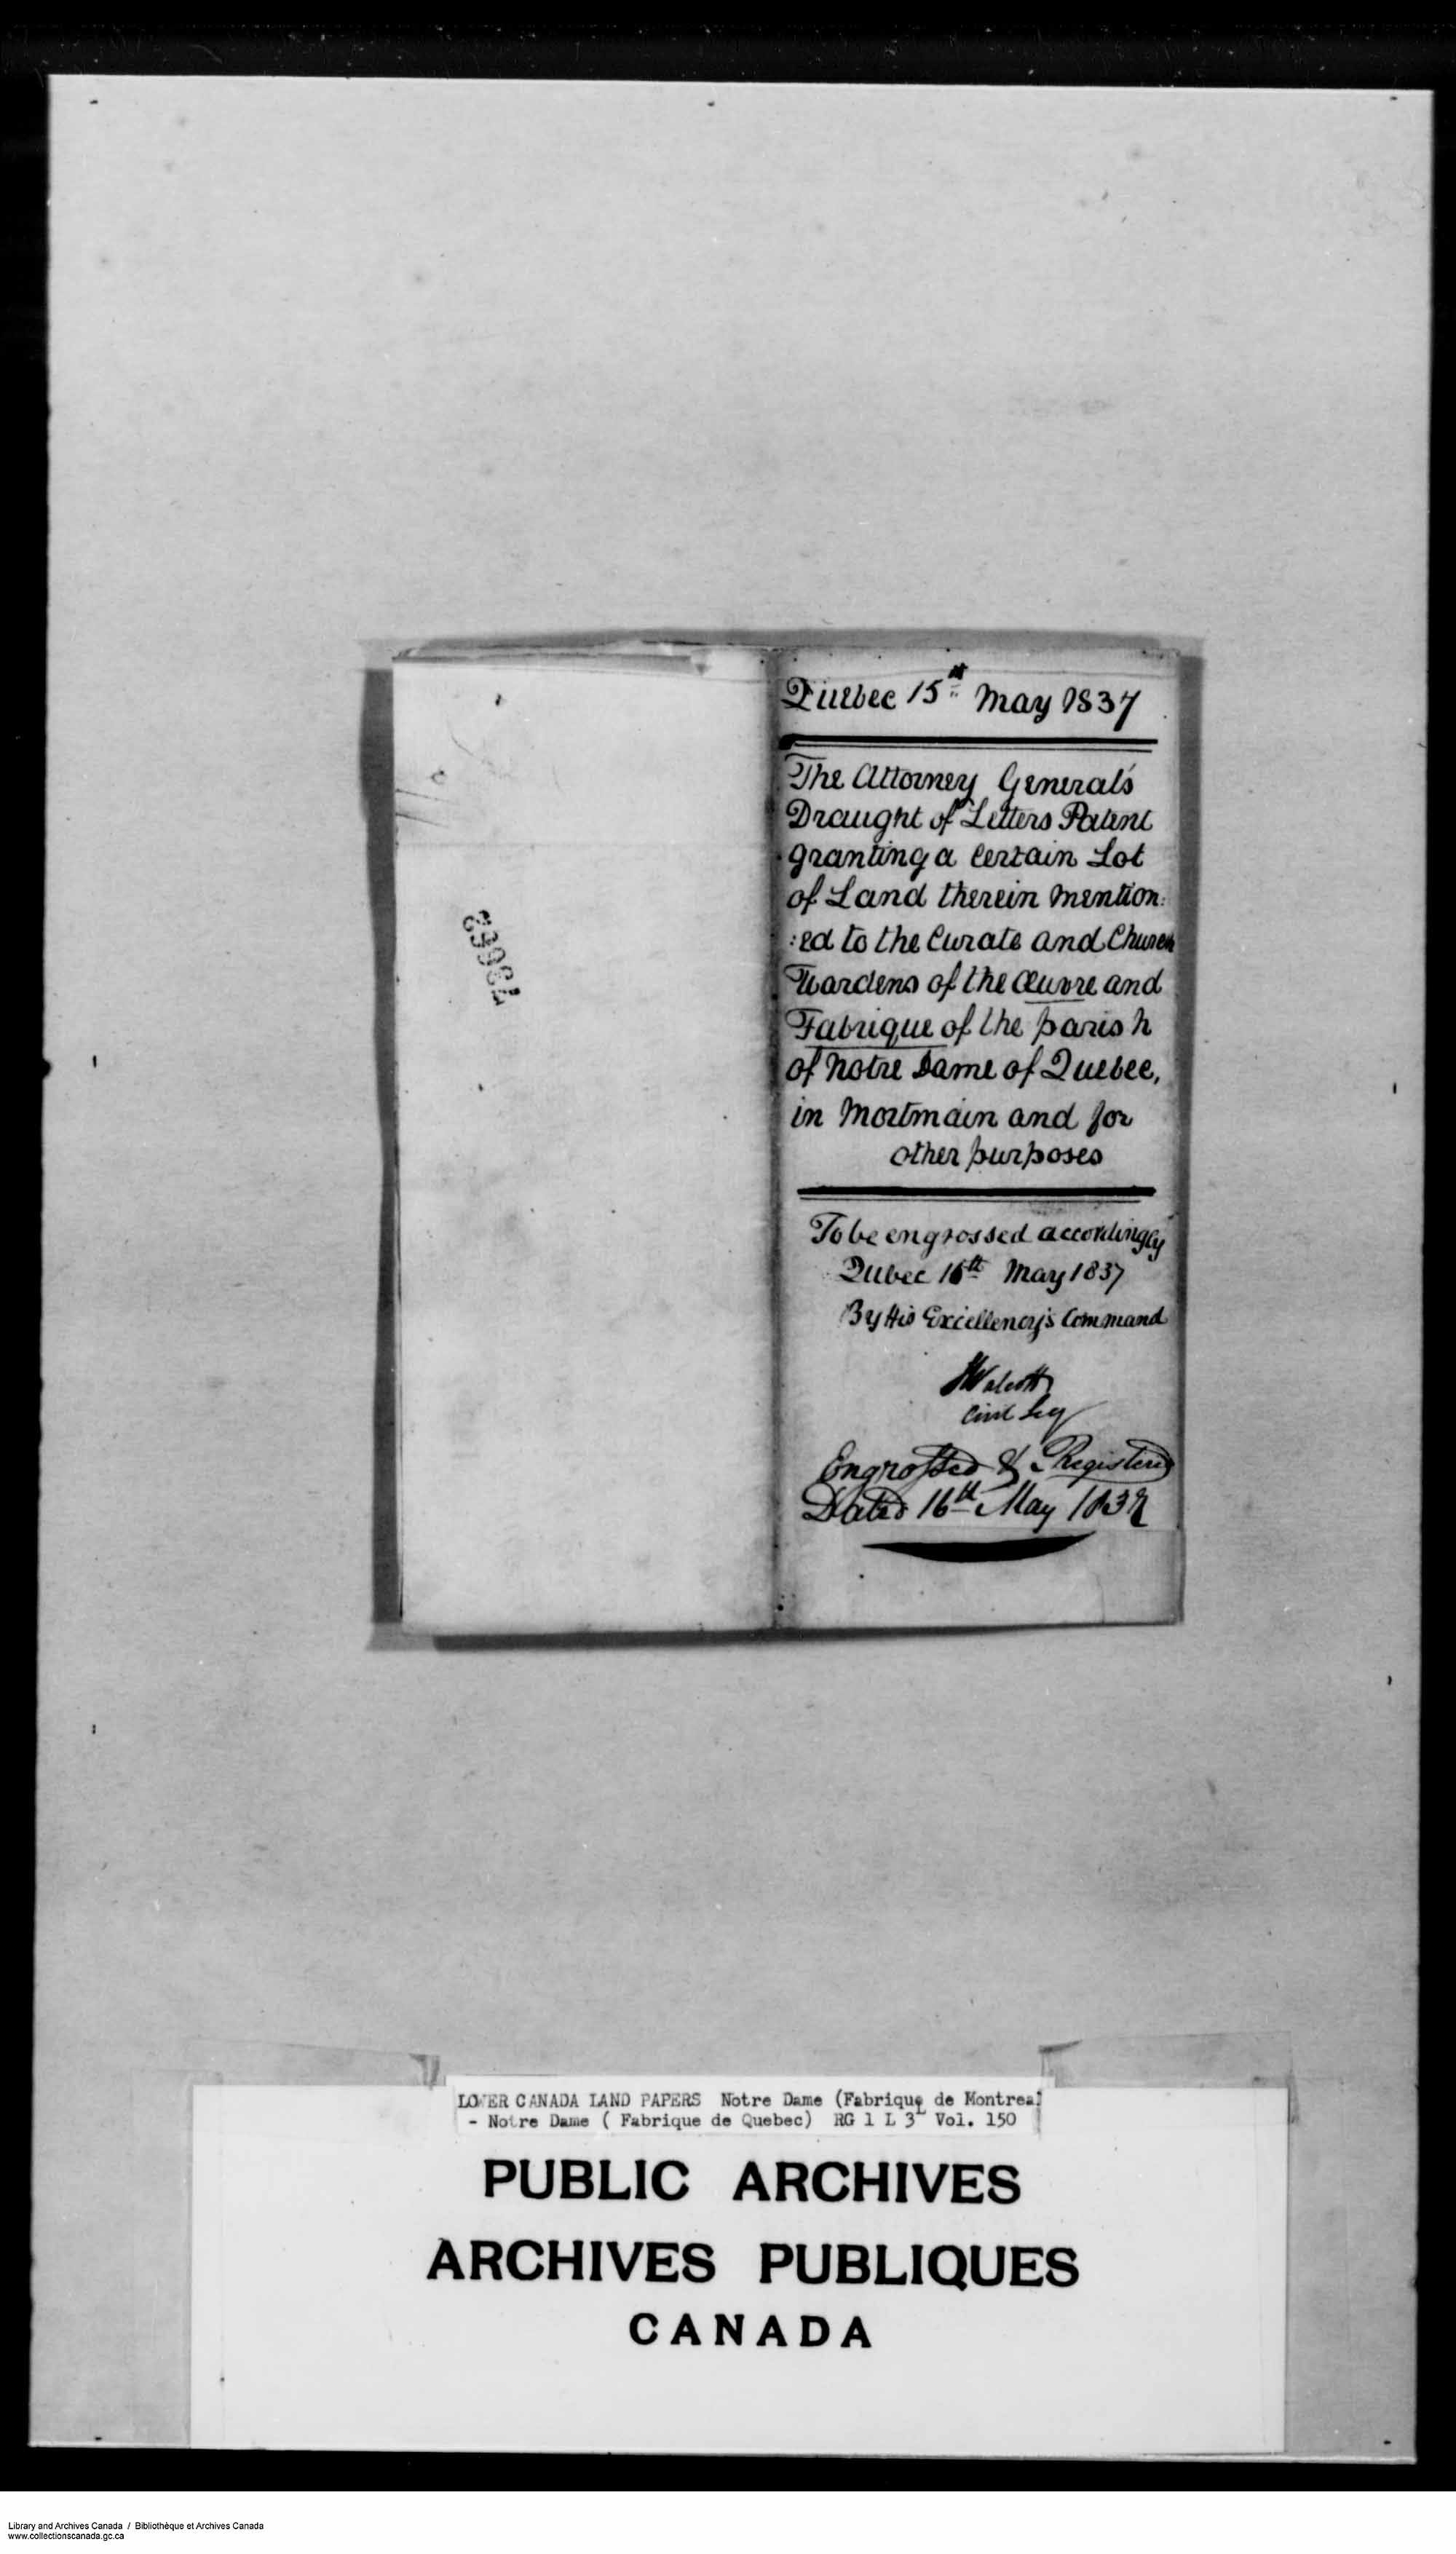 Quebec 15th May 1837
The Attorney General's
Draught of Letters Patent
granting a certain Lot
of Land therein mention:
:ed to the Curate and Church
Wardens of the Œuvre and
Fabrique of the parish
of Notre Dame of Quebec,
in Mortmain and for
other purposes
To be engrossed accordingly
Quebec 16th May 1837
By His Excellency's Command
S Walcott
Civil Secy
Engrossed & Registered
Dated 16th May 1837
LOWER CANADA LAND PAPERS Notre Dame (Fabrique de Montreal
- Notre Dame ( Fabrique de Quebec) RG 1 L 3L Vol. 150
PUBLIC ARCHIVES
ARCHIVES PUBLIQUES
CANADA
Library and Archives Canada / Bibliothèque et Archives Canada
www.collectionscanada.gc.ca